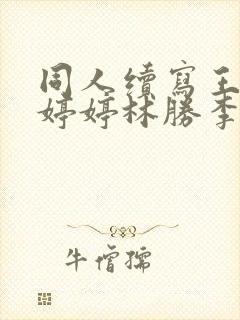 同人續寫王
婷婷林勝李
牛僧孺